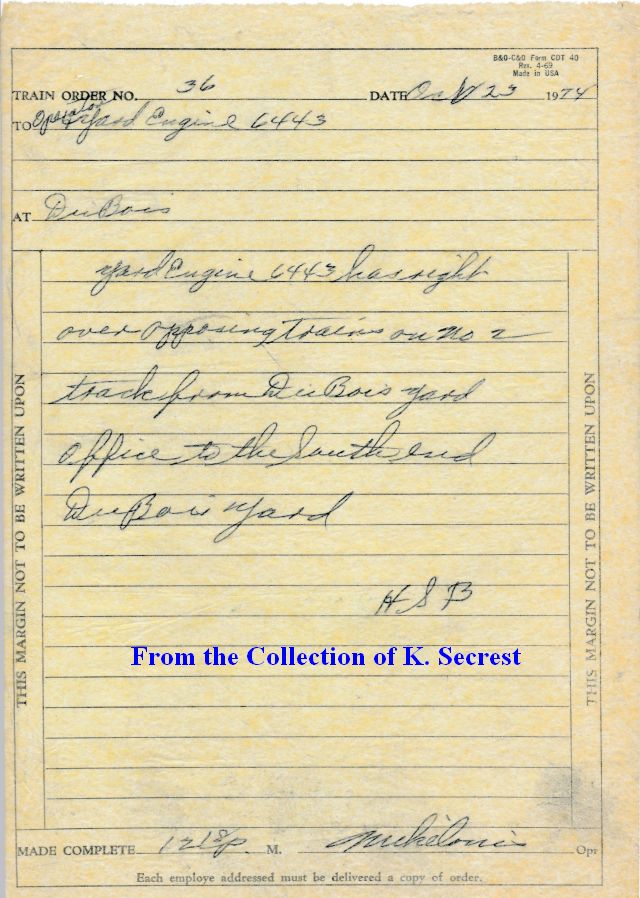 B&O-C&O Form CDT 40
Rev. 4-69
Made in USA
TRAIN ORDER NO. 36 DATE Oct 23 1974
TO Operator Yard Engine 6443
AT DuBois
Yard Engine 6443 has right
over opposing trains on no 2
track from DuBois yard
office to the South end
DuBois yard
H S B
From the Collection of K. Secrest
THIS MARGIN NOT TO BE WRITTEN UPON
THIS MARGIN NOT TO BE WRITTEN UPON
MADE COMPLETE 1218 p. M. Opr
Each employe addressed must be delivered a copy of order.